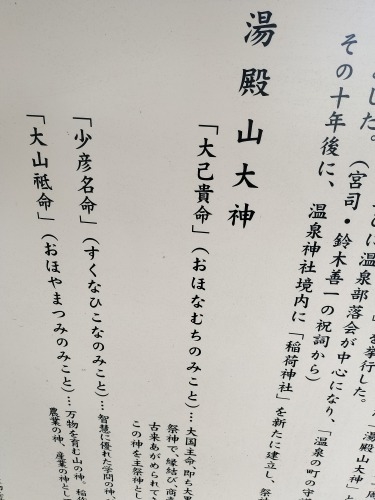 した。
温泉部落会が中心になり、「湯殿山大神」
を挙行した。
(宮司・鈴木善一の祝詞から)
その十年後に、温泉神社境内に「稲荷神社」を新たに建立し、
「温泉の町の守
湯殿山大神
「大己貴命」(おほなむちのみこと)…大国主命、即ち大黒
祭神で、縁結び、商
古来あがめられて
この神を主祭神と
「少彦名命」(すくなひこなのみこと)…智慧に優れた学問の神、
「大山祗命」(おほやまつみのみこと)…万物を育む山の神。稲
農業の神、産業の神とし